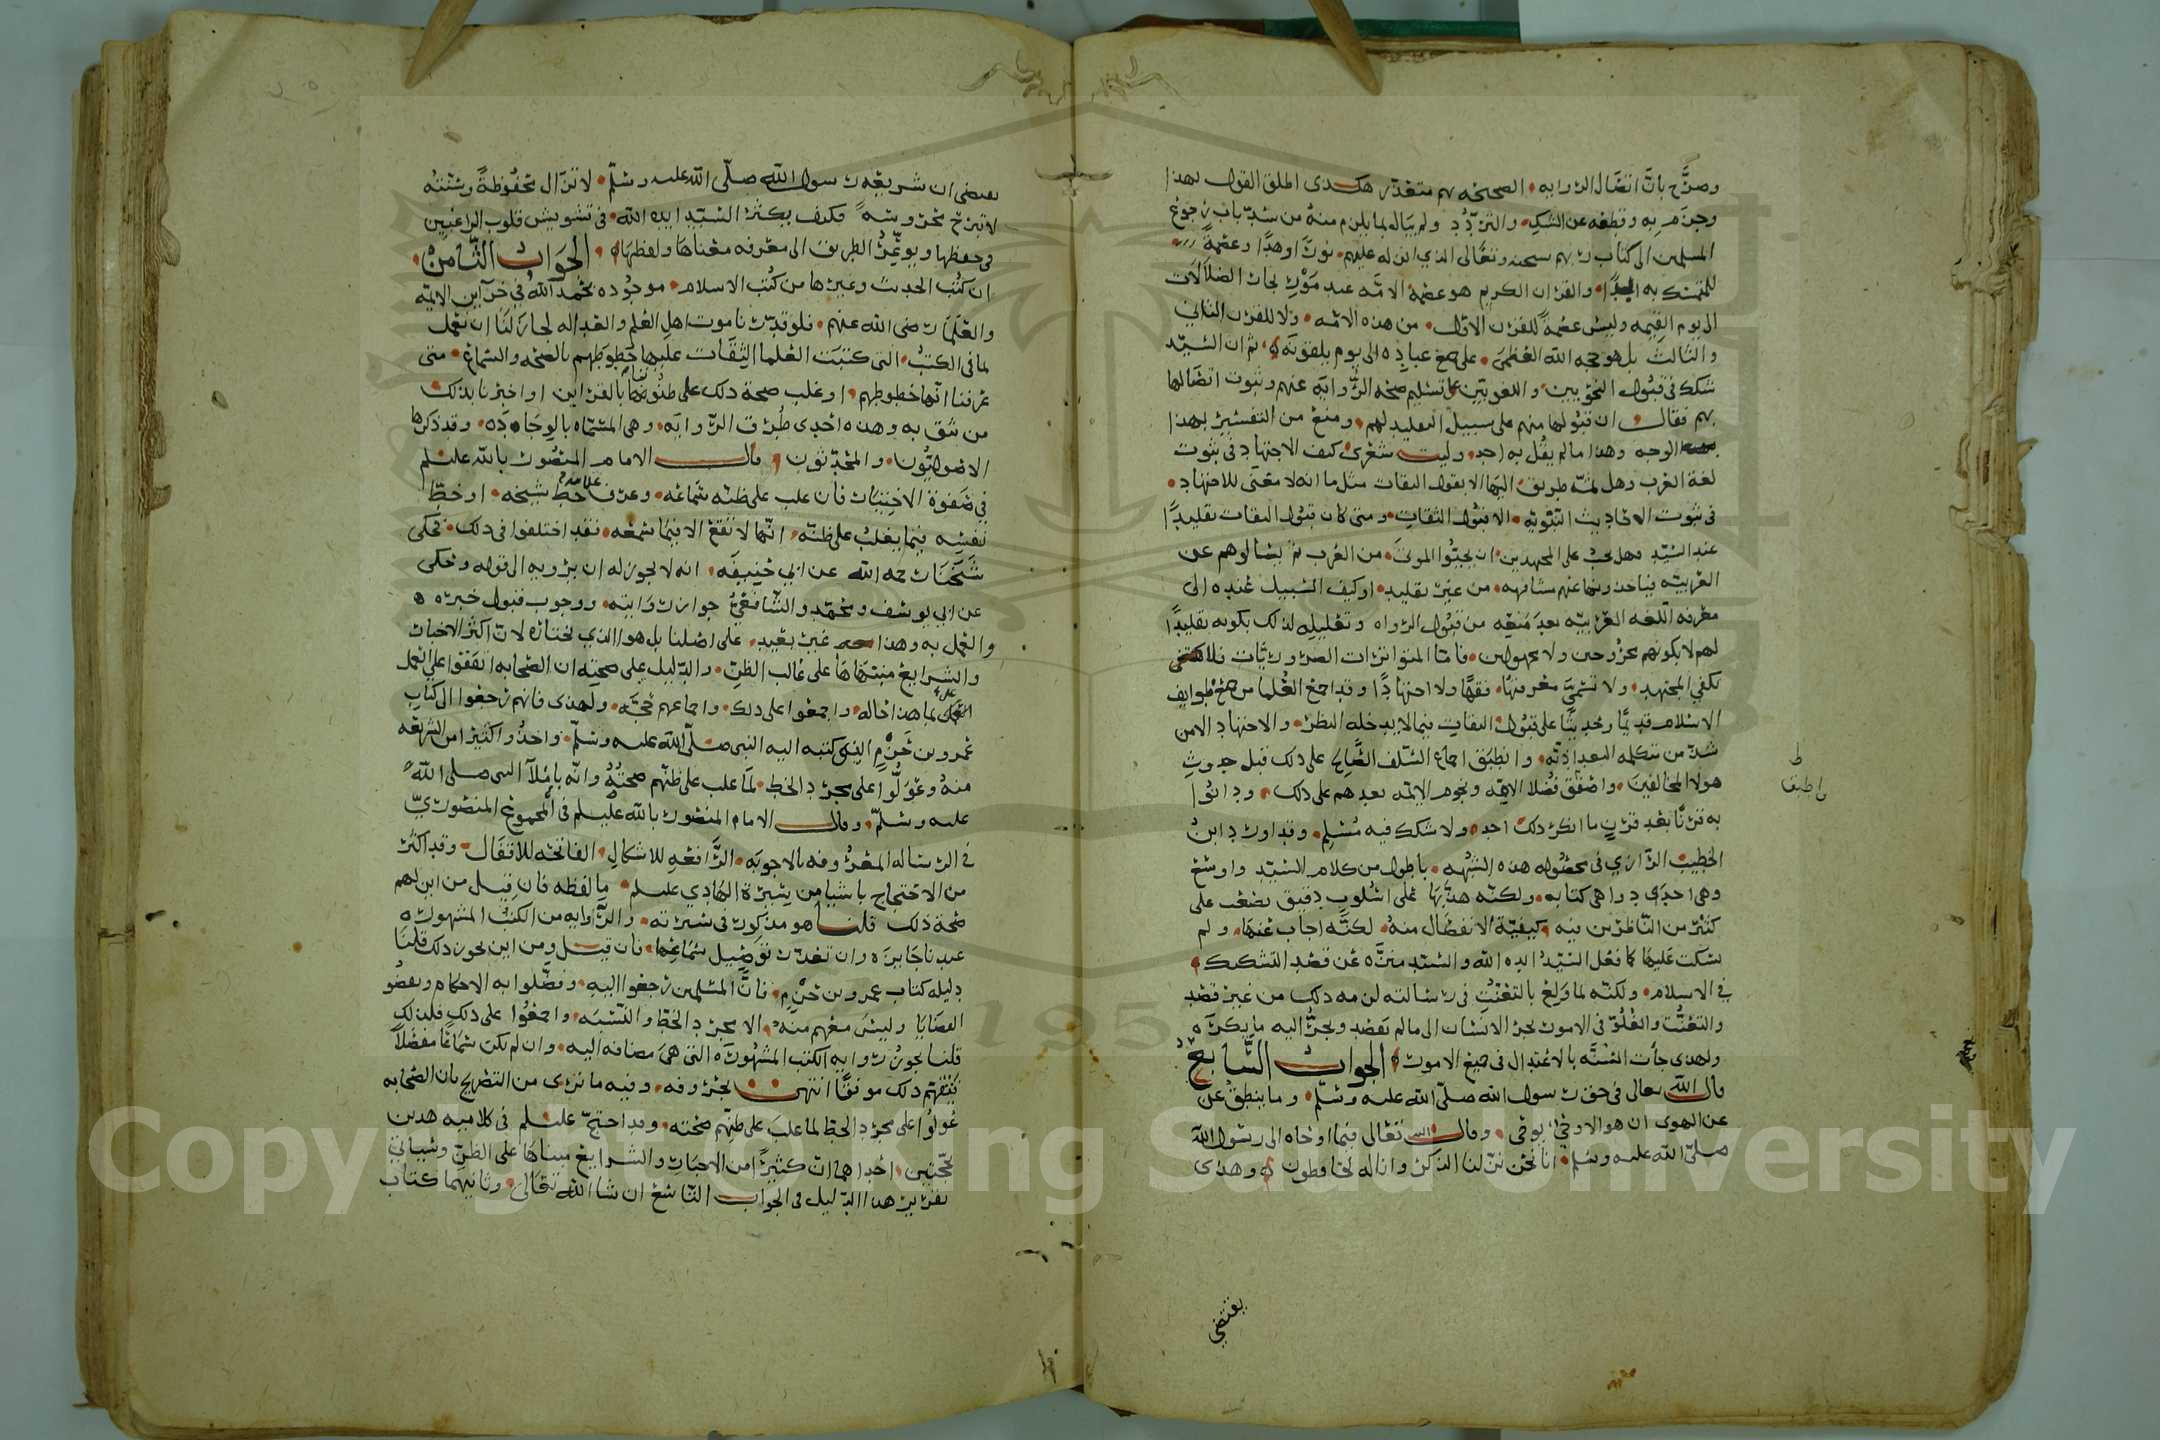 وصرح بان اتصال الرواية الصحيحة بهم متعذر هكذى اطلق القول بهذا
وجزم به وقطعه عن الشك والتردد ولم يبال بما يلزم منه من سد باب رجوع
المسلمين الى كتاب ربهم سبحنه وتعالى الذي انزله عليهم نورا وهدا وعصمة
للمتمسك به ابدا والقران الكريم هو عصمة الامة عند موج بحار الضلالات
الى يوم القيمه وليس عصمة للقرن الاول من هذه الامه ولا للقرن الثاني
والثالث بل هو حجه الله العظمى على جميع عباده الى يوم يلقونه ثم ان السيد
شكك في قبول النحويين واللغويين على تسليم صحه الرواية عنهم وثبوت اتصالها
بهم فقال ان قبولها منهم على سبيل التقليد لهم ومنع من التفسير لهذا
الوجه وهذا ما لم يقل به احد وليت شعري كيف الاجتهاد في ثبوت
لغة العرب وهل ثمه طريق اليها الا بقول الثقات مثل ما انه لا معنى للاجتهاد
في ثبوت الاحاديث النبويه الا قبول الثقات ومتى كان قبول الثقات تقليدا
عند السيد فهل يجب على المجتهدين ان يحيوا الموتى من العرب ثم يسالوهم عن
العربيه فياخذونها عنهم مشافهه من غير تقليد او كيف السبيل عنده الى
معرفه اللغه العربيه بعد منعه من قبول الرواه وتعليله لذلك بكونه تقليدا
لهم لا بكونهم مجروحين ولا مجهولين فاما المتواترات الضروريات فلا
تكفي المجتهد ولا تسمى معرفتها فقها ولا اجتهادا وقد اجمع العلما من جميع طوايف
الاسلام قديما وحديثا على قبول الثقات فيما لا يدخله النظر والاجتهاد الا من
شذ من متكلمه البغداديه وانطبق اجماع السلف الصالح على ذلك قبل حدوث
هولا المخالفين واصفق فضلا الامه ونجوم الايمه بعدهم على ذلك ودانوا
به قرنا بعد قرن ما انكر ذلك احد ولا شكك فيه مسلم وقد اورد ابن
الخطيب الرازي في محصوله هذه الشبهه باطول من كلام السيد واوسع
وهي احدى دواهي كتابه ولكنه هذبها على اسلوب دقيق يصعب على
كثير من الناظرين فيه كيفية الانفصال منه لكنه اجاب عنها ولم
يسكت عليها كما فعل السيد ايده الله والسيد منزه عن قصد التشكيك
في الاسلام ولكنه لما ولع بالتعنت في رسالته لزمه ذلك من غير قصد
والتعنت والغلو في الامور يجر الانسان الى ما لم يقصد ويجر اليه ما يكره
ولهذى جات السنه بالاعتدال في جميع الامور الجواب السابع
قال الله تعالى في حق رسول الله صلى الله عليه وسلم وما ينطق عن
عن الهوى ان هو الا وحي يوحى وقال الله تعالى فيما اوحاه الى رسول الله
صلى الله عليه وسلم انا نحن نزلنا الذكر وانا له لحافظون وهذى
يقتضي
ط
وانطبق
يقتضي ان شريعه رسول الله صلى الله عليه وسلم لا تزال محفوظة وسنته
لا تبرح محروسة فكيف يكثر السيد ايده الله في تشويش قلوب الراغبين
في حفظها ويوعر الطريق الى معرفه معناها ولفظها الجواب الثامن
ان كتب الحديث وغيرها من كتب الاسلام موجوده بحمد الله في خزاين الايمه
والعلما رضى الله عنهم فلو قدرنا موت اهل العلم والعداله لجاز لنا ان نعمل
بما في الكتب التى كتبت العلما الثقات عليها خطوطهم بالصحه والسماع متى
عرفنا انها خطوطهم او غلب صحة ذلك على ظنوننا بالقراين او اخبرنا بذلك
من نثق به وهذه احدى طرق الرواية وهى المسماه بالوجاده وقد ذكرها
الاصوليون والمحدثون قال الامام المنصور بالله عليلم
في صفوة الاختيار فان غلب على ظنه سماعه وعرف خط شيخه او خط
نفسه فيما يغلب على ظنه انها لا تقع الا فيما سمعه فقد اختلفوا في ذلك فحكى
شيخنا رحمه الله عن ابي حنيفه انه لا يجوز له ان يرويه الى قوله وحكى
عن ابي يوسف ومحمد والشافعي جواز روايته ووجوب قبول خبره
والعمل به وهذا غير بعيد على اصلنا بل هو الذي نختاره لان اكثر الاخبار
والشرايع مبتناها على غالب الظن والدليل على صحته ان الصحابه اتفقوا على العمل
بما هذا حاله واجمعوا على ذلك واجماعهم حجه ولهذى فانهم رجعوا الى كتاب
عمرو بن حزم الذي كتبه اليه النبى صلى الله عليه وسلم واخذوا كثيرا من الشريعه
منه وعولوا على مجرد الخط لما غلب على ظنهم صحته وانه باملا النبى صلى الله
عليه وسلم وقال الامام المنصور بالله عليلم في المجموع المنصوري
في الرساله المعروفه بالاجوبه الرافعه للاشكال الفاتحه للاقفال وقد اكثر
من الاحتجاج باشيا من سيرة الهادي عليلم ما لفظه فان قيل من اين لهم
صحة ذلك قلنا هو مذكور في سيرته والروايه من الكتب المشهوره
عندنا جايزه وان تعذر توصيل سماعها فان قيل ومن اين يجوز ذلك قلنا
دليله كتاب عمرو بن حزم فان المسلمين رجعوا اليه وفصلوا به الاحكام وبعض
القضايا وليس معهم منه الا مجرد الخط والنسبه واجمعوا على ذلك فلذلك
قلنا يجوز روايه الكتب المشهوره التى هى مضافه اليه وان لم يكن سماعا مفصلا
فيفهم ذلك موفقا انتهى بحروفه وفيه ما ترى من التصريح بان الصحابه
عولوا على مجرد الخط لما غلب على ظنهم صحته وقد احتج عليلم في كلاميه هذين
بحجتين احداهما ان كثيرا من الاخبار والشرايع مبناها على الظن وسياتي
تقرير هذا الدليل في الجواب التاسع ان شا الله تعالى وثانيهما كتاب
Copyright © King Saud University
1957